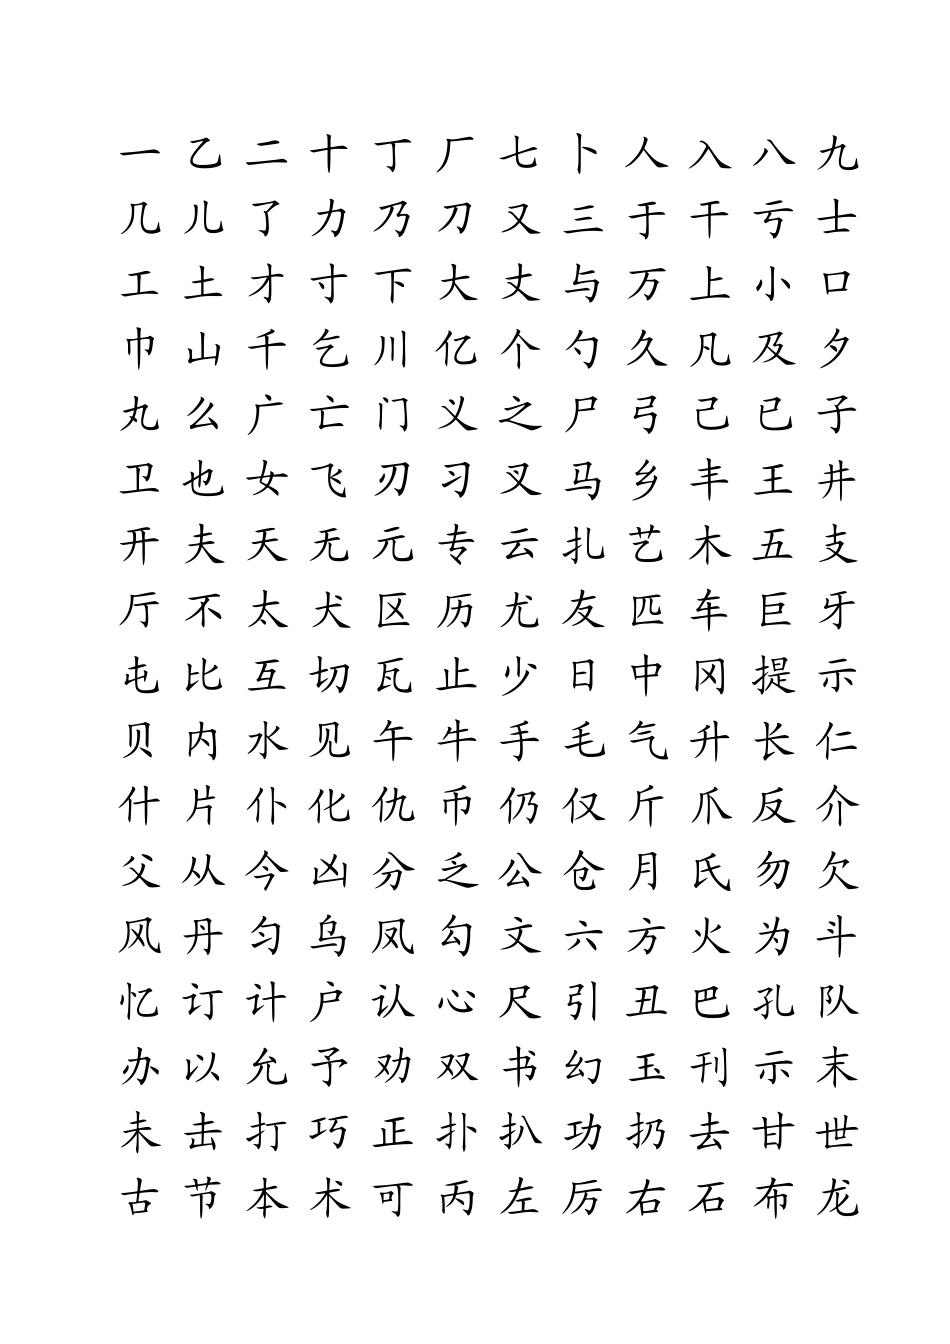 一 乙 二 十 丁 厂 七 卜 人 入 八 九
几 儿 了 力 乃 刀 又 三 于 干 亏 士
工 土 才 寸 下 大 丈 与 万 上 小 口
巾 山 千 乞 川 亿 个 勺 久 凡 及 夕
丸 么 广 亡 门 义 之 尸 弓 己 已 子
卫 也 女 飞 刃 习 叉 马 乡 丰 王 井
开 夫 天 无 元 专 云 扎 艺 木 五 支
厅 不 太 犬 区 历 尤 友 匹 车 巨 牙
屯 比 互 切 瓦 止 少 日 中 冈 提 示
贝 内 水 见 午 牛 手 毛 气 升 长 仁
什 片 仆 化 仇 币 仍 仅 斤 爪 反 介
父 从 今 凶 分 乏 公 仓 月 氏 勿 欠
风 丹 匀 乌 凤 勾 文 六 方 火 为 斗
忆 订 计 户 认 心 尺 引 丑 巴 孔 队
办 以 允 予 劝 双 书 幻 玉 刊 示 末
未 击 打 巧 正 扑 扒 功 扔 去 甘 世
古 节 本 术 可 丙 左 厉 右 石 布 龙